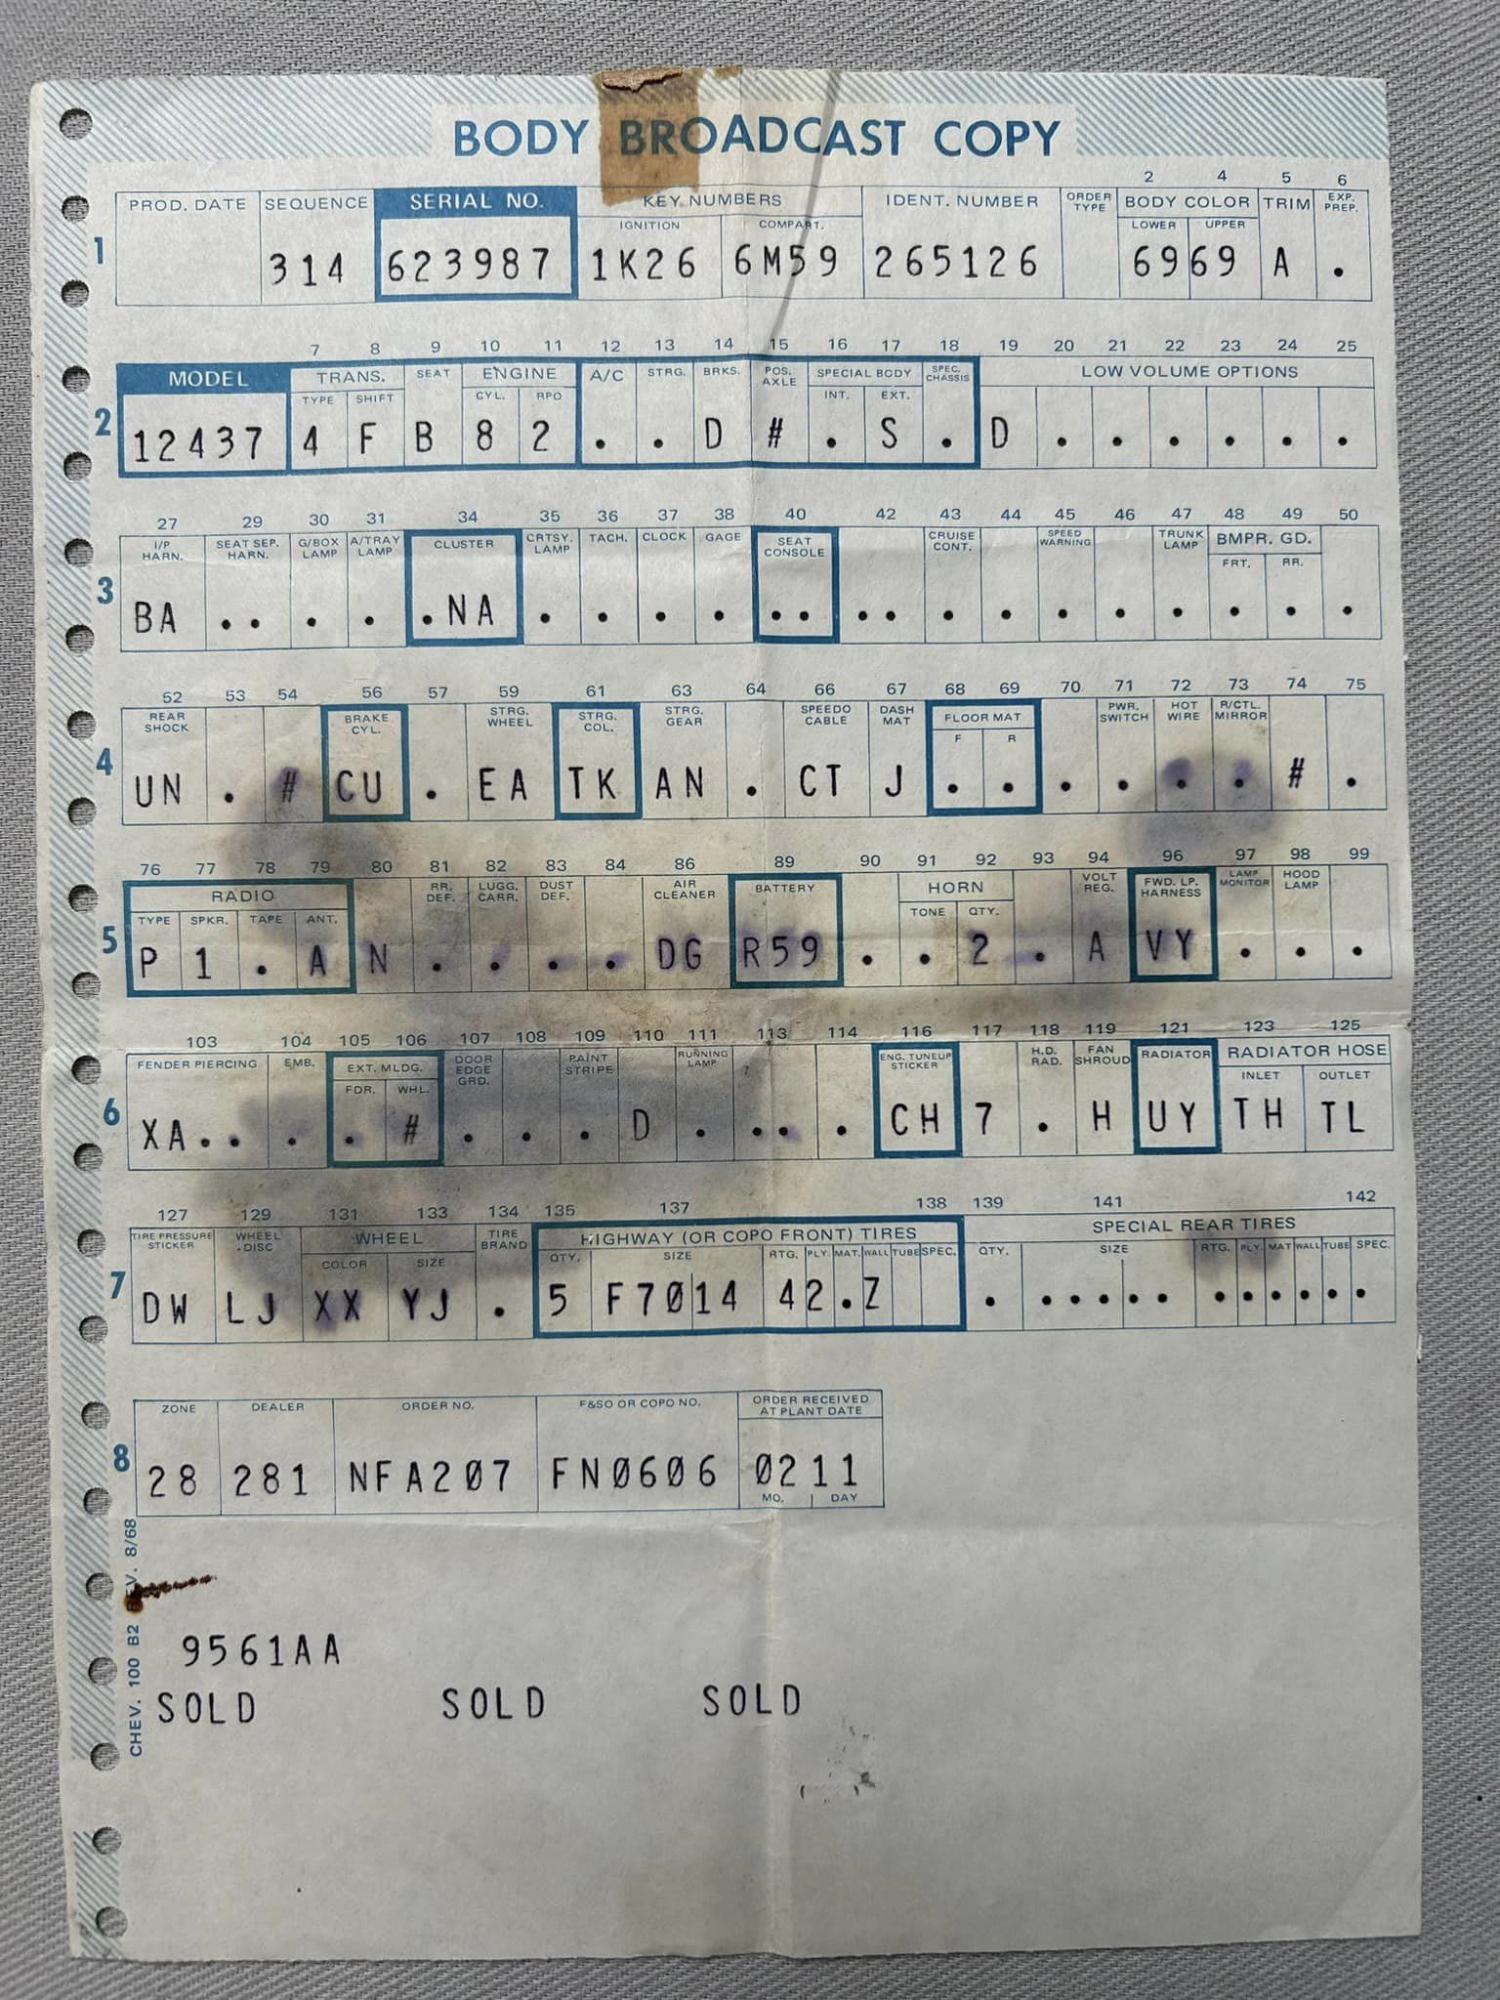 BODY BROADCAST COPY
2 4 5 6
PROD. DATE SEQUENCE SERIAL NO. KEY NUMBERS IDENT. NUMBER ORDER TYPE BODY COLOR TRIM EXP. PREP.
IGNITION COMPART. LOWER UPPER
1 314 623987 1K26 6M59 265126 69 69 A .
7 8 9 10 11 12 13 14 15 16 17 18 19 20 21 22 23 24 25
MODEL TRANS. SEAT ENGINE A/C STRG. BRKS. POS. AXLE SPECIAL BODY SPEC. CHASSIS LOW VOLUME OPTIONS
TYPE SHIFT CYL. RPO INT. EXT.
2 12437 4 F B 8 2 . . D # . S . D . . . . . .
27 29 30 31 34 35 36 37 38 40 42 43 44 45 46 47 48 49 50
I/P HARN. SEAT SEP. HARN. G/BOX LAMP A/TRAY LAMP CLUSTER CRTSY. LAMP TACH. CLOCK GAGE SEAT CONSOLE CRUISE CONT. SPEED WARNING TRUNK LAMP BMPR. GD.
FRT. RR.
3 BA . . . . . NA . . . . . . . . . . . . . . . .
52 53 54 56 57 59 61 63 64 66 67 68 69 70 71 72 73 74 75
REAR SHOCK BRAKE CYL. STRG. WHEEL STRG. COL. STRG. GEAR SPEEDO CABLE DASH MAT FLOOR MAT PWR. SWITCH HOT WIRE R/CTL. MIRROR
F R
4 UN . # CU . EA TK AN . CT J . . . . . . # .
76 77 78 79 80 81 82 83 84 86 89 90 91 92 93 94 96 97 98 99
RADIO RR. DEF. LUGG. CARR. DUST DEF. AIR CLEANER BATTERY HORN VOLT REG. FWD. LP. HARNESS LAMP MONITOR HOOD LAMP
TYPE SPKR. TAPE ANT. TONE QTY.
5 P 1 . A N . . . . DG R59 . . 2 . A VY . . .
103 104 105 106 107 108 109 110 111 113 114 116 117 118 119 121 123 125
FENDER PIERCING EMB. EXT. MLDG. DOOR EDGE GRD. PAINT STRIPE RUNNING LAMP ENG. TUNEUP STICKER H.D. RAD. FAN SHROUD RADIATOR RADIATOR HOSE
FDR. WHL. INLET OUTLET
6 XA . . . . # . . . D . . . . CH 7 . H UY TH TL
127 129 131 133 134 135 137 138 139 141 142
TIRE PRESSURE STICKER WHEEL DISC WHEEL TIRE BRAND HIGHWAY (OR COPO FRONT) TIRES SPECIAL REAR TIRES
COLOR SIZE QTY. SIZE RTG. PLY. MAT. WALL TUBE SPEC. QTY. SIZE RTG. PLY. MAT WALL TUBE SPEC.
7 DW LJ XX YJ . 5 F7014 42.Z . . . . . . . . . . . .
ZONE DEALER ORDER NO. F&SO OR COPO NO. ORDER RECEIVED AT PLANT DATE
8 28 281 NFA207 FN0606 0211
MO. DAY
CHEV. 100 B2 REV. 8/68
9561AA
SOLD SOLD SOLD